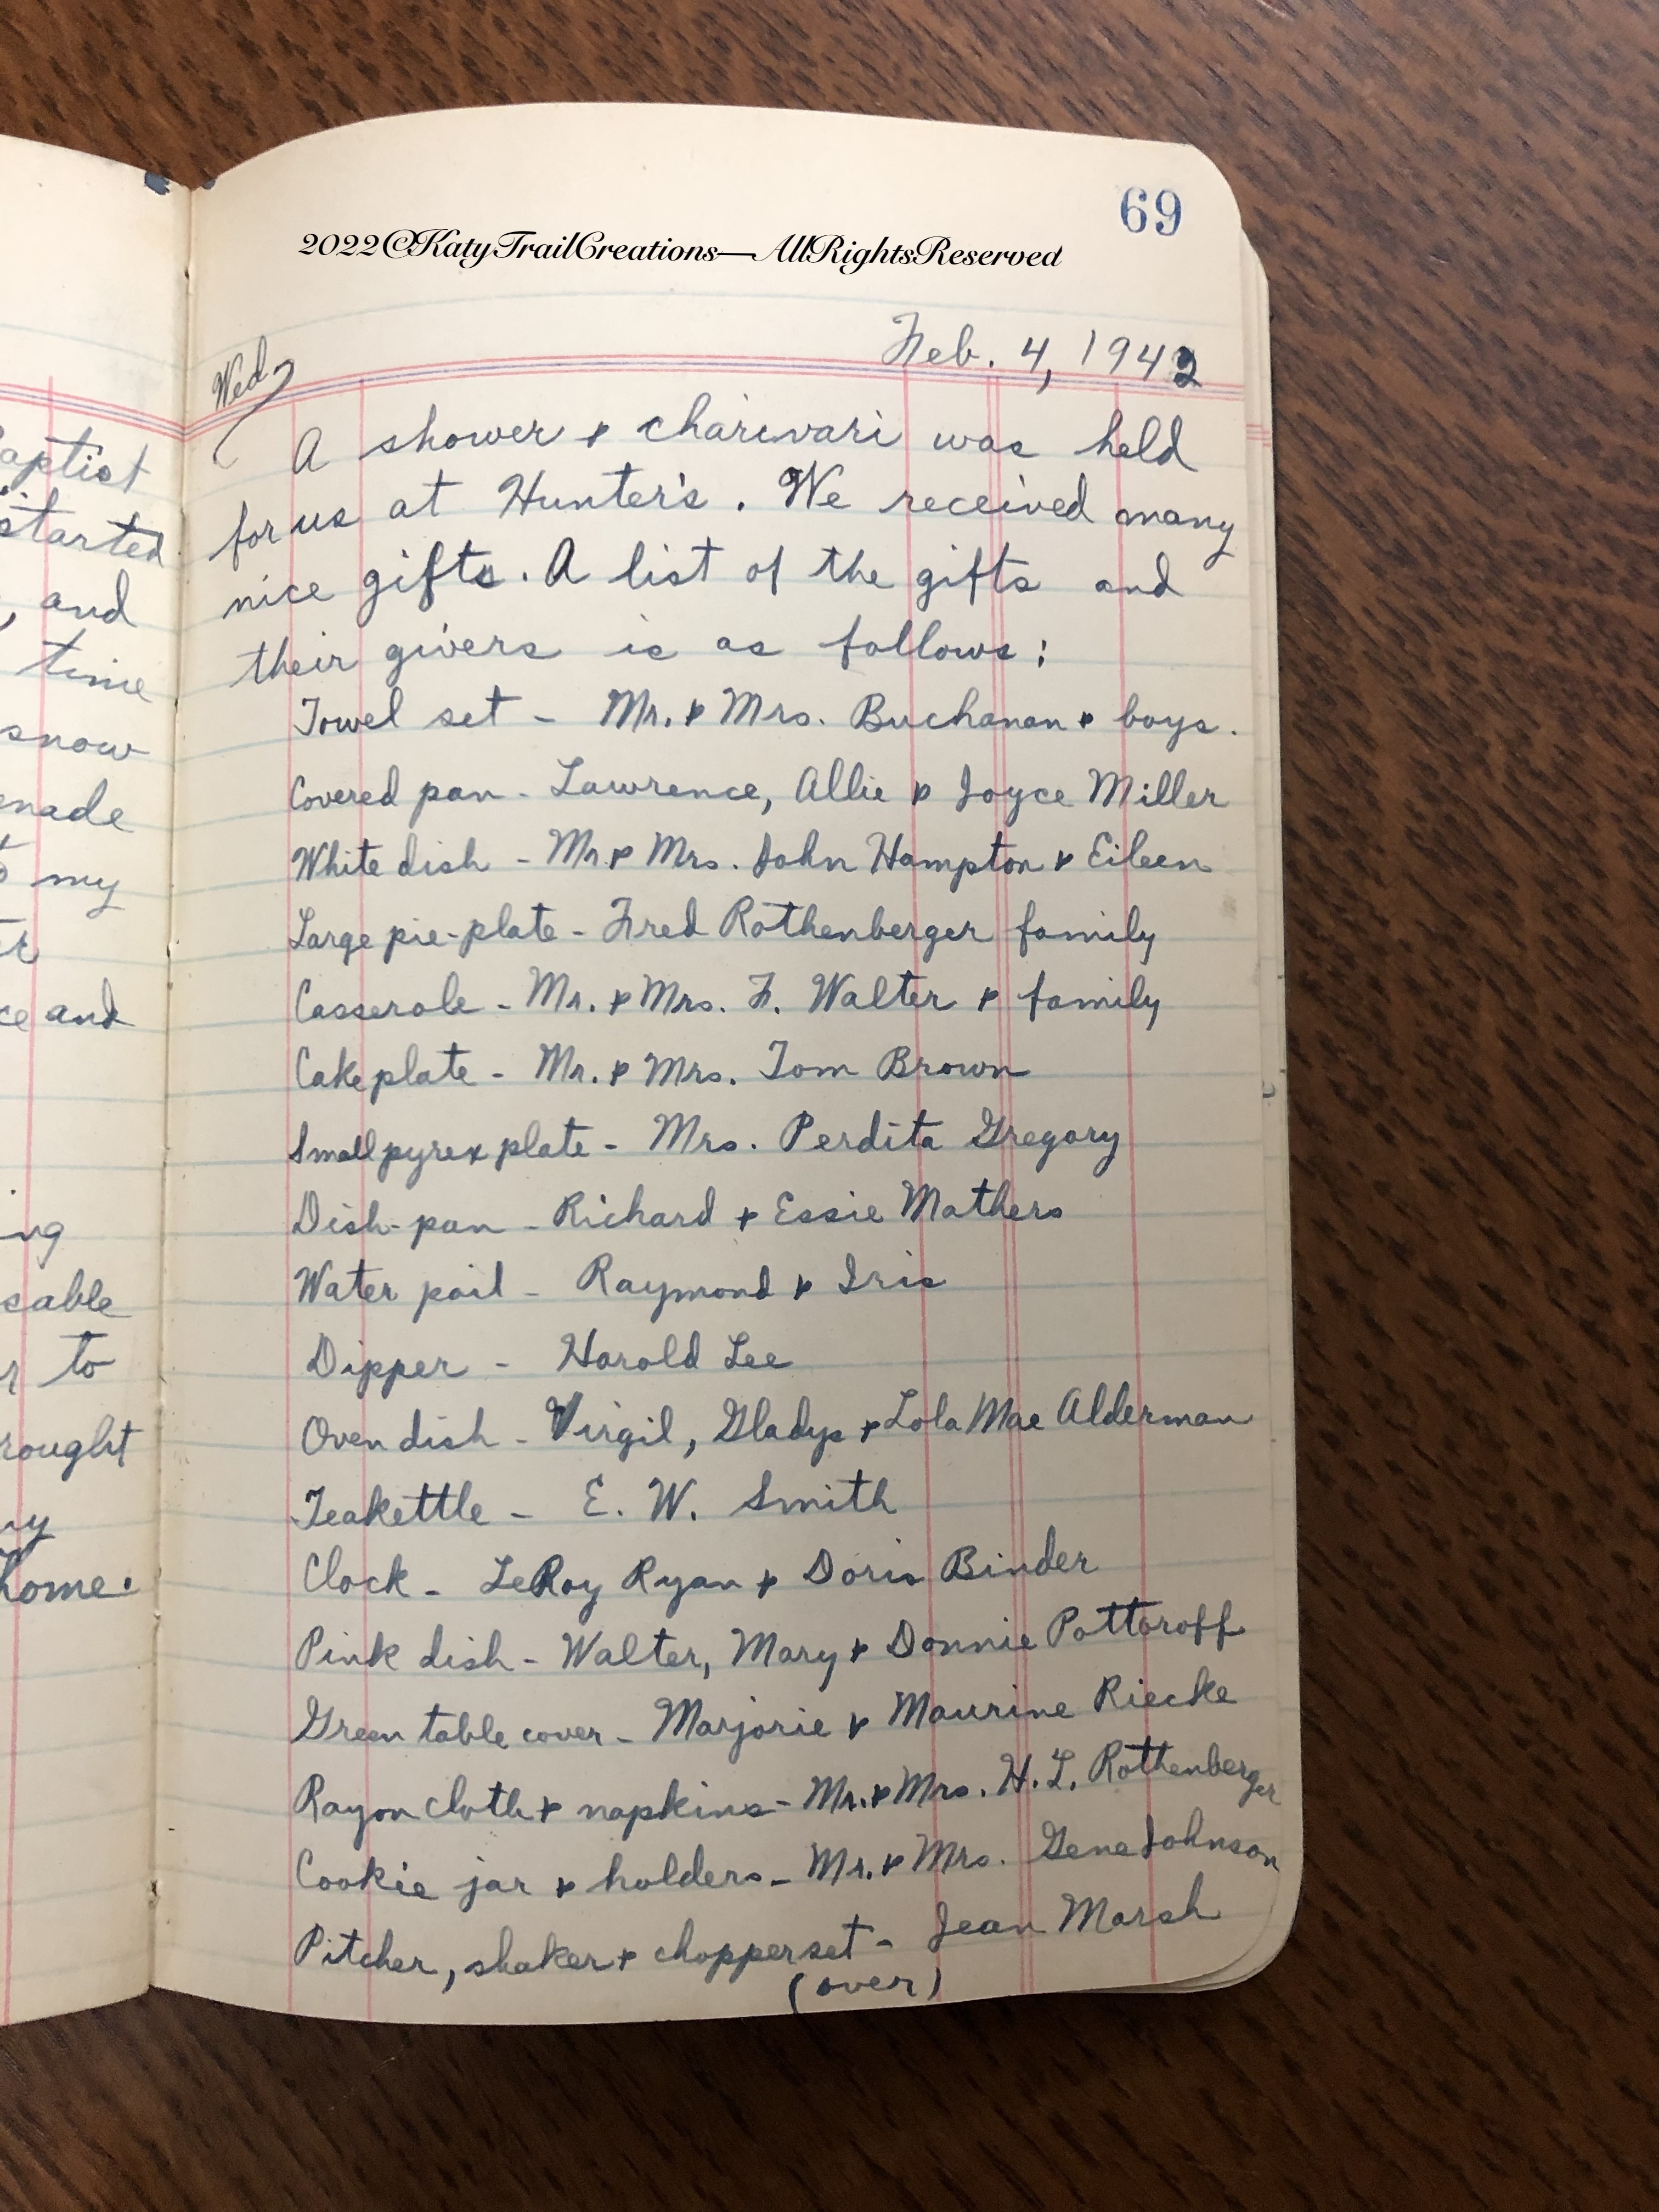 aptist
started
, and
time
snow
my
and
to
home.
69
2022©KatyTrailCreations—AllRightsReserved
Feb. 4, 1942
Wed.
A shower + charivari was held
for us at Hunter's. We received many
nice gifts. A list of the gifts and
their givers is as follows:
Towel set - Mr. + Mrs. Buchanan + boys.
Covered pan - Lawrence, Allie + Joyce Miller
White dish - Mr. + Mrs. John Hampton + Eileen
Large pie-plate - Fred Rothenberger family
Casserole - Mr. + Mrs. F. Walter + family
Cake plate - Mr. + Mrs. Tom Brown
Small pyrex plate - Mrs. Perdita Gregory
Dish-pan - Richard + Essie Mathers
Water pail - Raymond + Iris
Dipper - Harold Lee
Oven dish - Virgil, Gladys + Lola Mae Alderman
Teakettle - E. W. Smith
Clock - LeRoy Ryan + Doris Binder
Pink dish - Walter, Mary + Donnie Pottoroff
Green table cover - Marjorie + Maurine Riecke
Rayon cloth + napkins - Mr. + Mrs. H. L. Rothenberger
Cookie jar + holders - Mr. + Mrs. Gene Johnson
Pitcher, shaker + chopper set - Jean Marsh
(over)